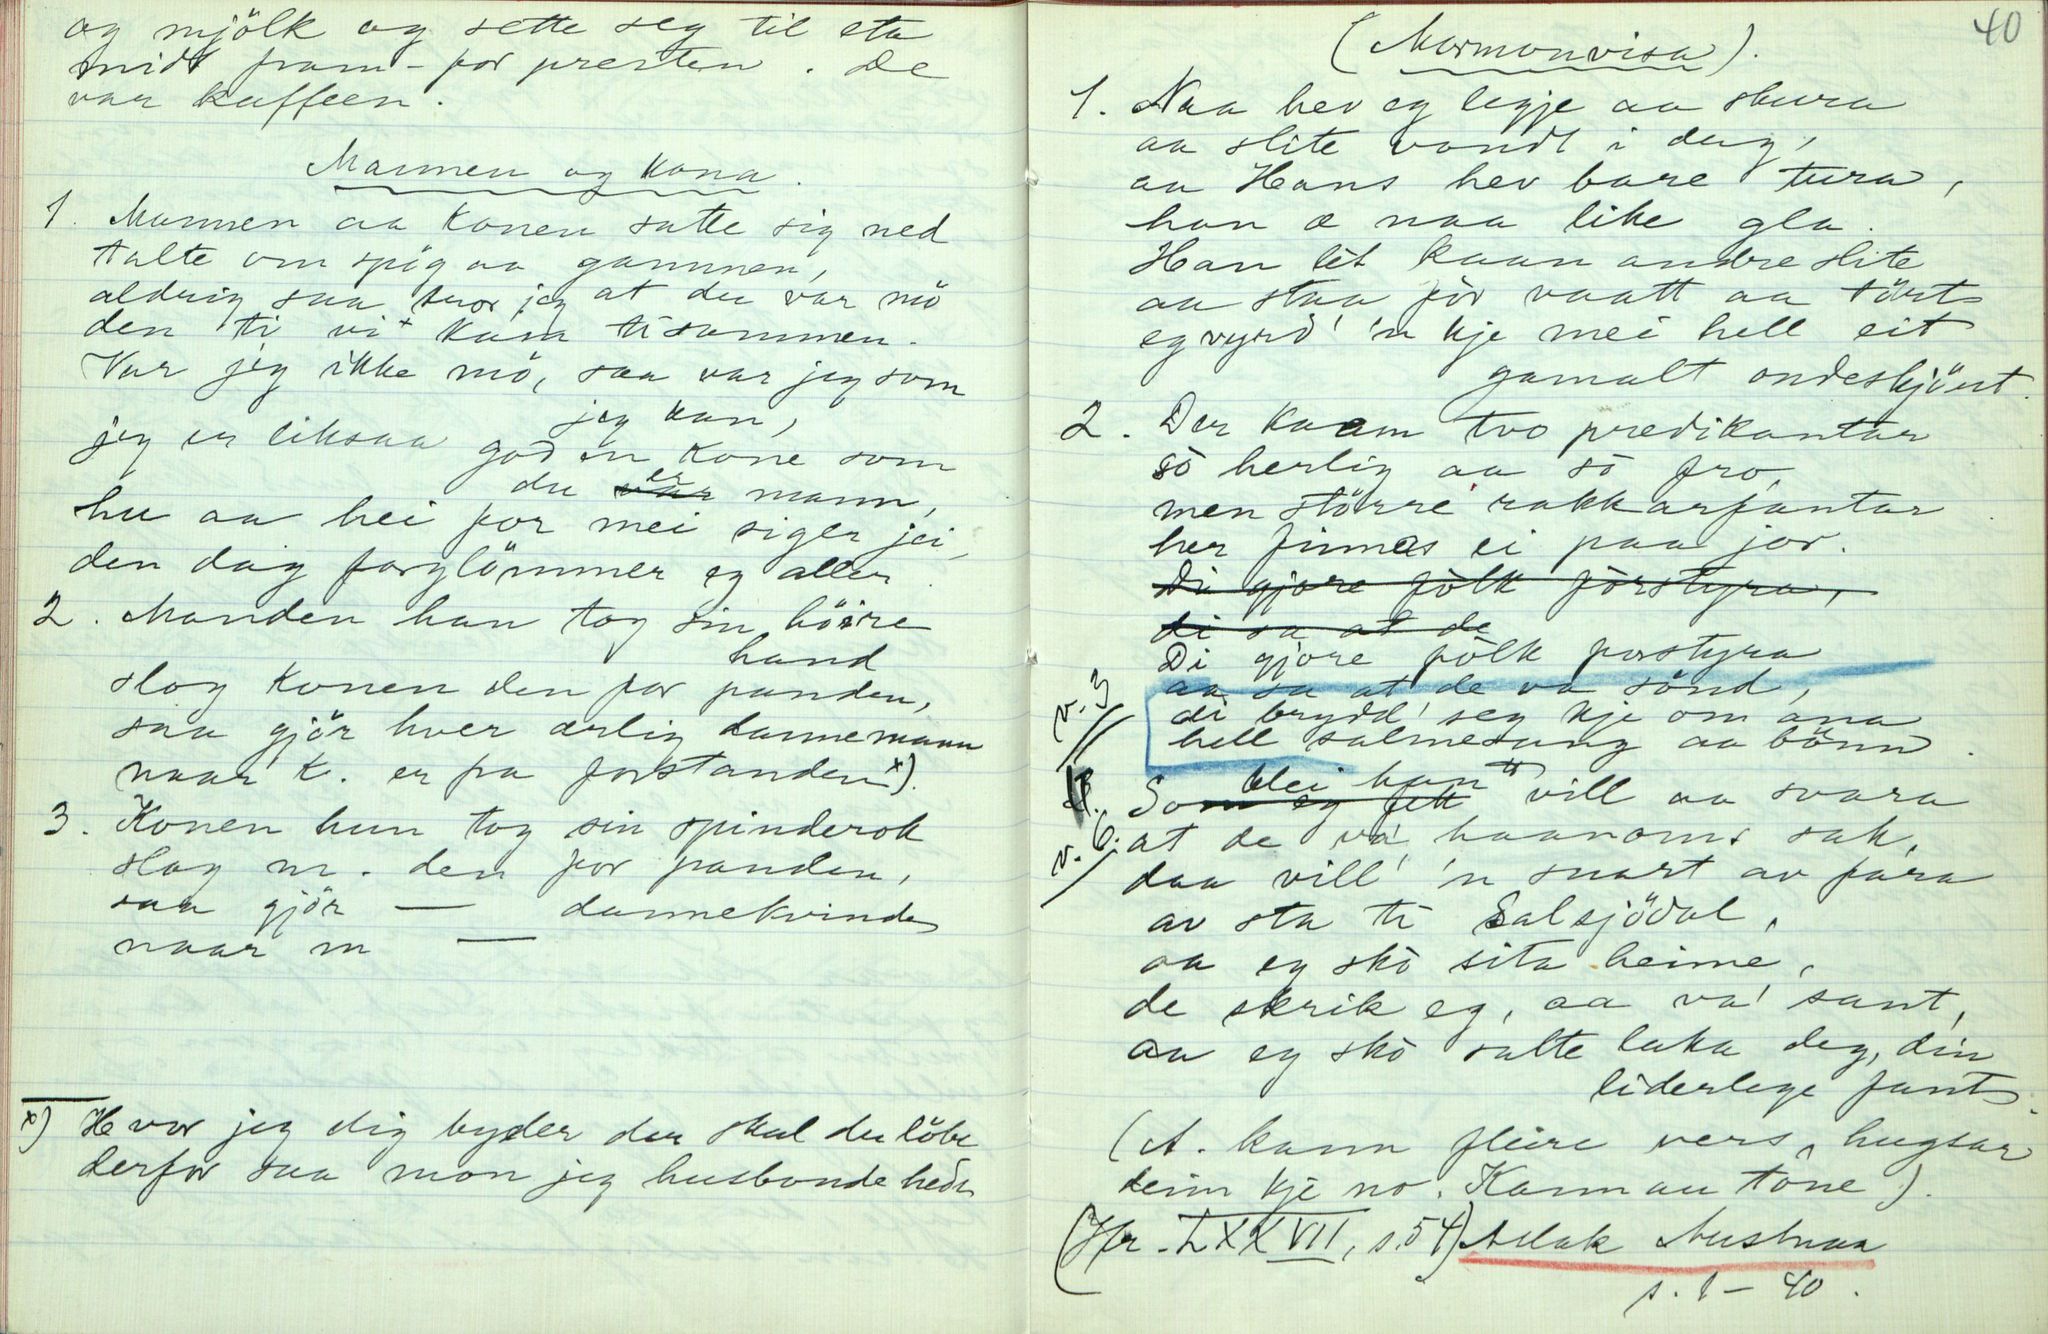 og mjölk og sette seg til eta
midt fram-for presten. De
var kaffeen.
Mannen og kona.
1. Mannen aa konen satte sig ned
talte om spög aa gammen,
aldrig saa tror jeg at du var mö
den ti vi kam tisammen.
Var jeg ikke mö, saa var jeg som
jeg kan,
jeg er liksaa god en kone som
du ~~var~~ er mann,
hu aa hei for mei siger jei,
den dag forglömmer eg aller.
2. Manden han tog sin höire
hand
slog konen den for panden,
saa gjör hver ærlig dannemann
naar k. er fra forstanden x).
3. Konen hun tog sin spinderok
slog m. den for panden,
saa gjör — dannekvinde
naar m —
x) Hvor jeg dig byder der skal du löbe
derfor saa mon jeg husbonde hede
40
(Mormonvisa).
1. Naa hev eg legje aa skura
aa slite vondt i dag,
aa Hans hev bare tura,
han æ naa like gla.
Han lèt kaan andre slite
aa staa för vaatt aa tört
eg vyrd' 'n kje mei hell eit
gamalt ondeskjört.
2. Der kaam tvo predikantar
sò herlig aa sò fro,
men större rakkarfantar
her finnas ei paa jor.
~~Di gjore fòlk fòrstyra,~~
~~di sa at de~~
Di gjore fòlk forstyra
aa sa at de va sönd,
v. 3
di brydd' seg kje om ana
hell salmesang aa bönn.
So ~~m eg fekk~~ blei han vill aa svara
v. 6.
at de va haanoms sak,
daa vill' 'n snart av fara
av sta ti Salsjödal,
aa eg skò sita heime,
de skrik eg, aa va' sant,
aa eg skò salte luka deg, din
liderlege fant.
(A. kann fleire vers, hugsar
deim kje no. Kann au tòne).
(Hr. LXXVII, s. 54) Aslak Austnaa
s. 1 – 40.